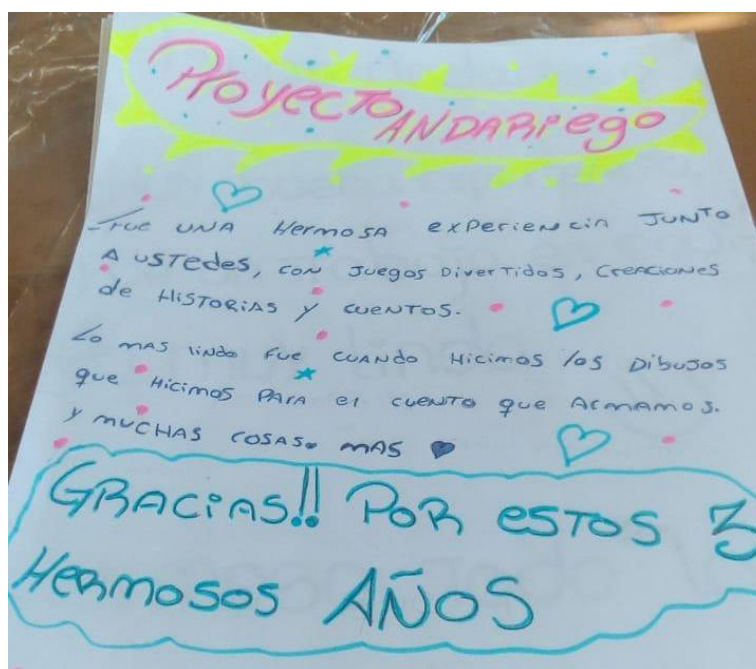 Proyecto ANDARiego
Fue UNA HermosA experiencia JUNTO
A USTedes, CON JUEGOS DiverTidos, CreACiONES
de HiSTORiAS y CUENTOS.
Lo mAS lindo Fue CUANDO Hicimos los DibuJos
que Hicimos PARA el CUENTO que ArmAmos.
y MUCHAS COSAS mAS
GRACiAS!! POR eSTOS 3
HermOSOS AÑOS